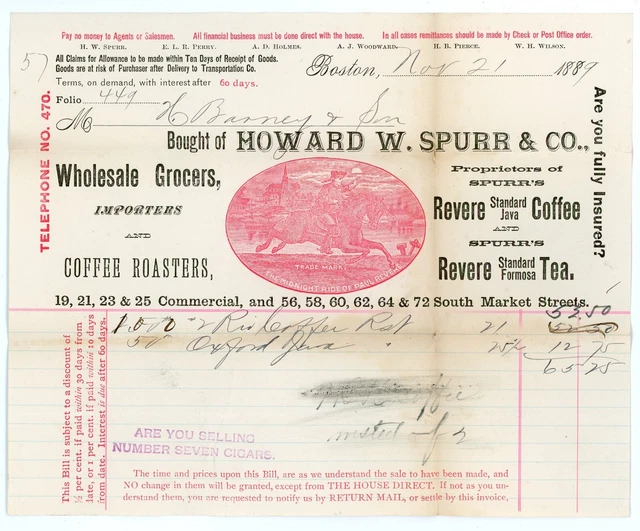 Pay no money to Agents or Salesmen. All financial business must be done direct with the house. In all cases remittances should be made by Check or Post Office order.
H. W. SPURR. E. L. R. PERRY. A. D. HOLMES. A. J. WOODWARD. H. B. PIERCE. W. H. WILSON.
57
All Claims for Allowance to be made within Ten Days of Receipt of Goods.
Goods are at risk of Purchaser after Delivery to Transportation Co.
Boston, Nov 21 1889
Terms, on demand, with interest after 60 days.
Folio 449
M H Barney & Son
Bought of HOWARD W. SPURR & CO.,
TELEPHONE NO. 470.
Are you fully Insured?
Wholesale Grocers,
IMPORTERS
AND
COFFEE ROASTERS,
TRADE MARK
THE MIDNIGHT RIDE OF PAUL REVERE
Proprietors of
SPURR'S
Revere Standard Java Coffee
AND
SPURR'S
Revere Standard Formosa Tea.
19, 21, 23 & 25 Commercial, and 56, 58, 60, 62, 64 & 72 South Market Streets.
52.50
Rio Coffee Rst 21
50 Oxford Java " 25½ 12 75
65 25
of 2
ARE YOU SELLING
NUMBER SEVEN CIGARS.
This Bill is subject to a discount of
½ per cent. if paid within 30 days from
date, or 1 per cent. if paid within 10 days
from date. Interest is due after 60 days.
The time and prices upon this Bill, are as we understand the sale to have been made, and
NO change in them will be granted, except from THE HOUSE DIRECT. If not as you un-
derstand them, you are requested to notify us by RETURN MAIL, or settle by this invoice.